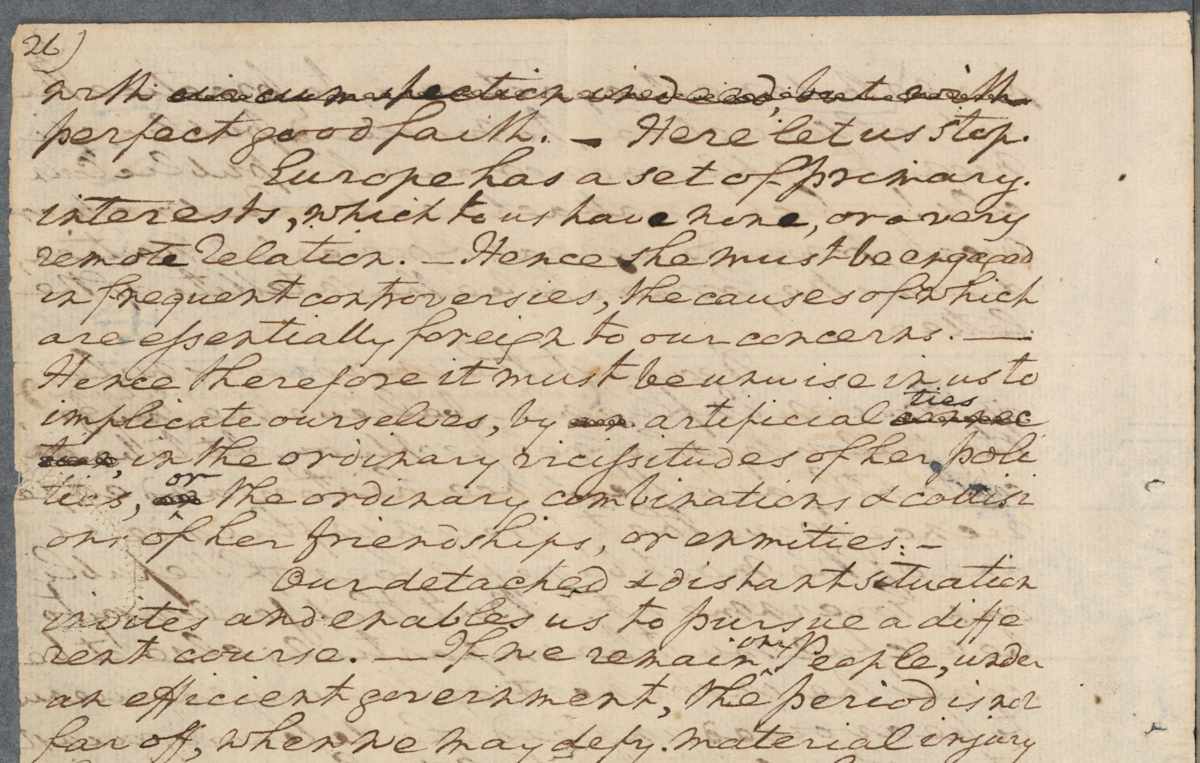 26)
with circumspection indeed, but with
perfect good faith. — Here let us stop.
Europe has a set of primary
interests, which to us have none, or a very
remote relation. — Hence she must be engaged
in frequent controversies, the causes of which
are essentially foreign to our concerns. —
Hence therefore it must be unwise in us to
implicate ourselves, by artificial ties
in the ordinary vicissitudes of her poli
tics, or the ordinary combinations & collisi
ons of her friendships, or enmities. —
Our detached & distant situation
invites and enables us to pursue a diffe
rent course. — If we remain one People, under
an efficient government, the period is not
far off, when we may defy material injury